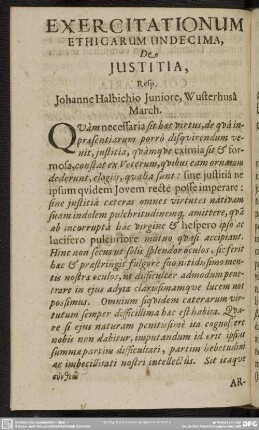 EXERCITATIONUM
ETHICARUM UNDECIMA,
De
JUSTITIA,
Resp.
Johanne Halbichio Juniore, Wusterhusâ
March.
QVàm necessaria sit hæc virtus, de quâ in
præsentiarum porrò disquirendum ve-
nit, justitia, quàmque eximia sit & for-
mosa, constat ex Veterum, quibus eam ornarunt
dederunt, elogiis, qualia sunt: sine justitiâ ne
ipsum quidem Jovem rectè posse imperare:
sine justitia ceteras omnes virtutes nativam
suam indolem pulchritudinemq; amittere, quâ
ab incorruptâ hâc virgine & hespero ipso ac
lucifero pulcriore mutuò quasi accipiant.
Hinc non secus ut solis splendor oculos, sic ferit
hæc & præstringit fulgore suo nitidissimo men-
tis nostræ oculos, ut difficulter admodum pene-
trare in ejus adyta clarissimamque lucem nos
possimus. Omnium siquidem caterarum vir-
tutum semper difficillima hæc est habita. Qua-
re si ejus naturam penitissimè ita cognoscere
nobis non dabitur, imputandum id erit ipsius
summæ partim difficultati, partim hebetudini
ac imbecillitati nostri intellectûs. Sit itaque
AR-